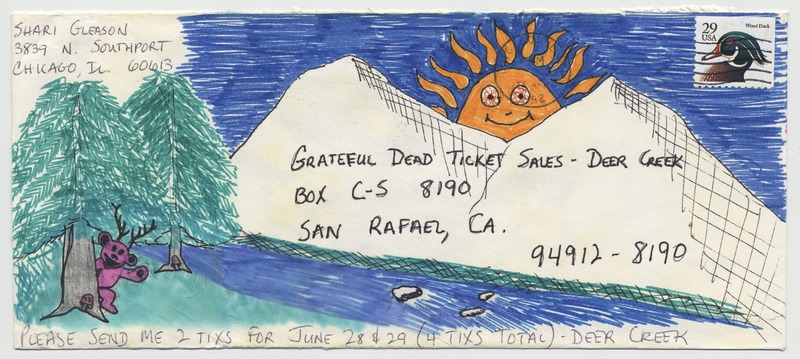 SHARI GLEASON
3839 N. SOUTHPORT
CHICAGO, IL. 60613
29
USA
Wood Duck
GRATEFUL DEAD TICKET SALES - DEER CREEK
BOX C-S 8190
SAN RAFAEL, CA.
94912 - 8190
PLEASE SEND ME 2 TIXS FOR JUNE 28 & 29 (4 TIXS TOTAL) - DEER CREEK